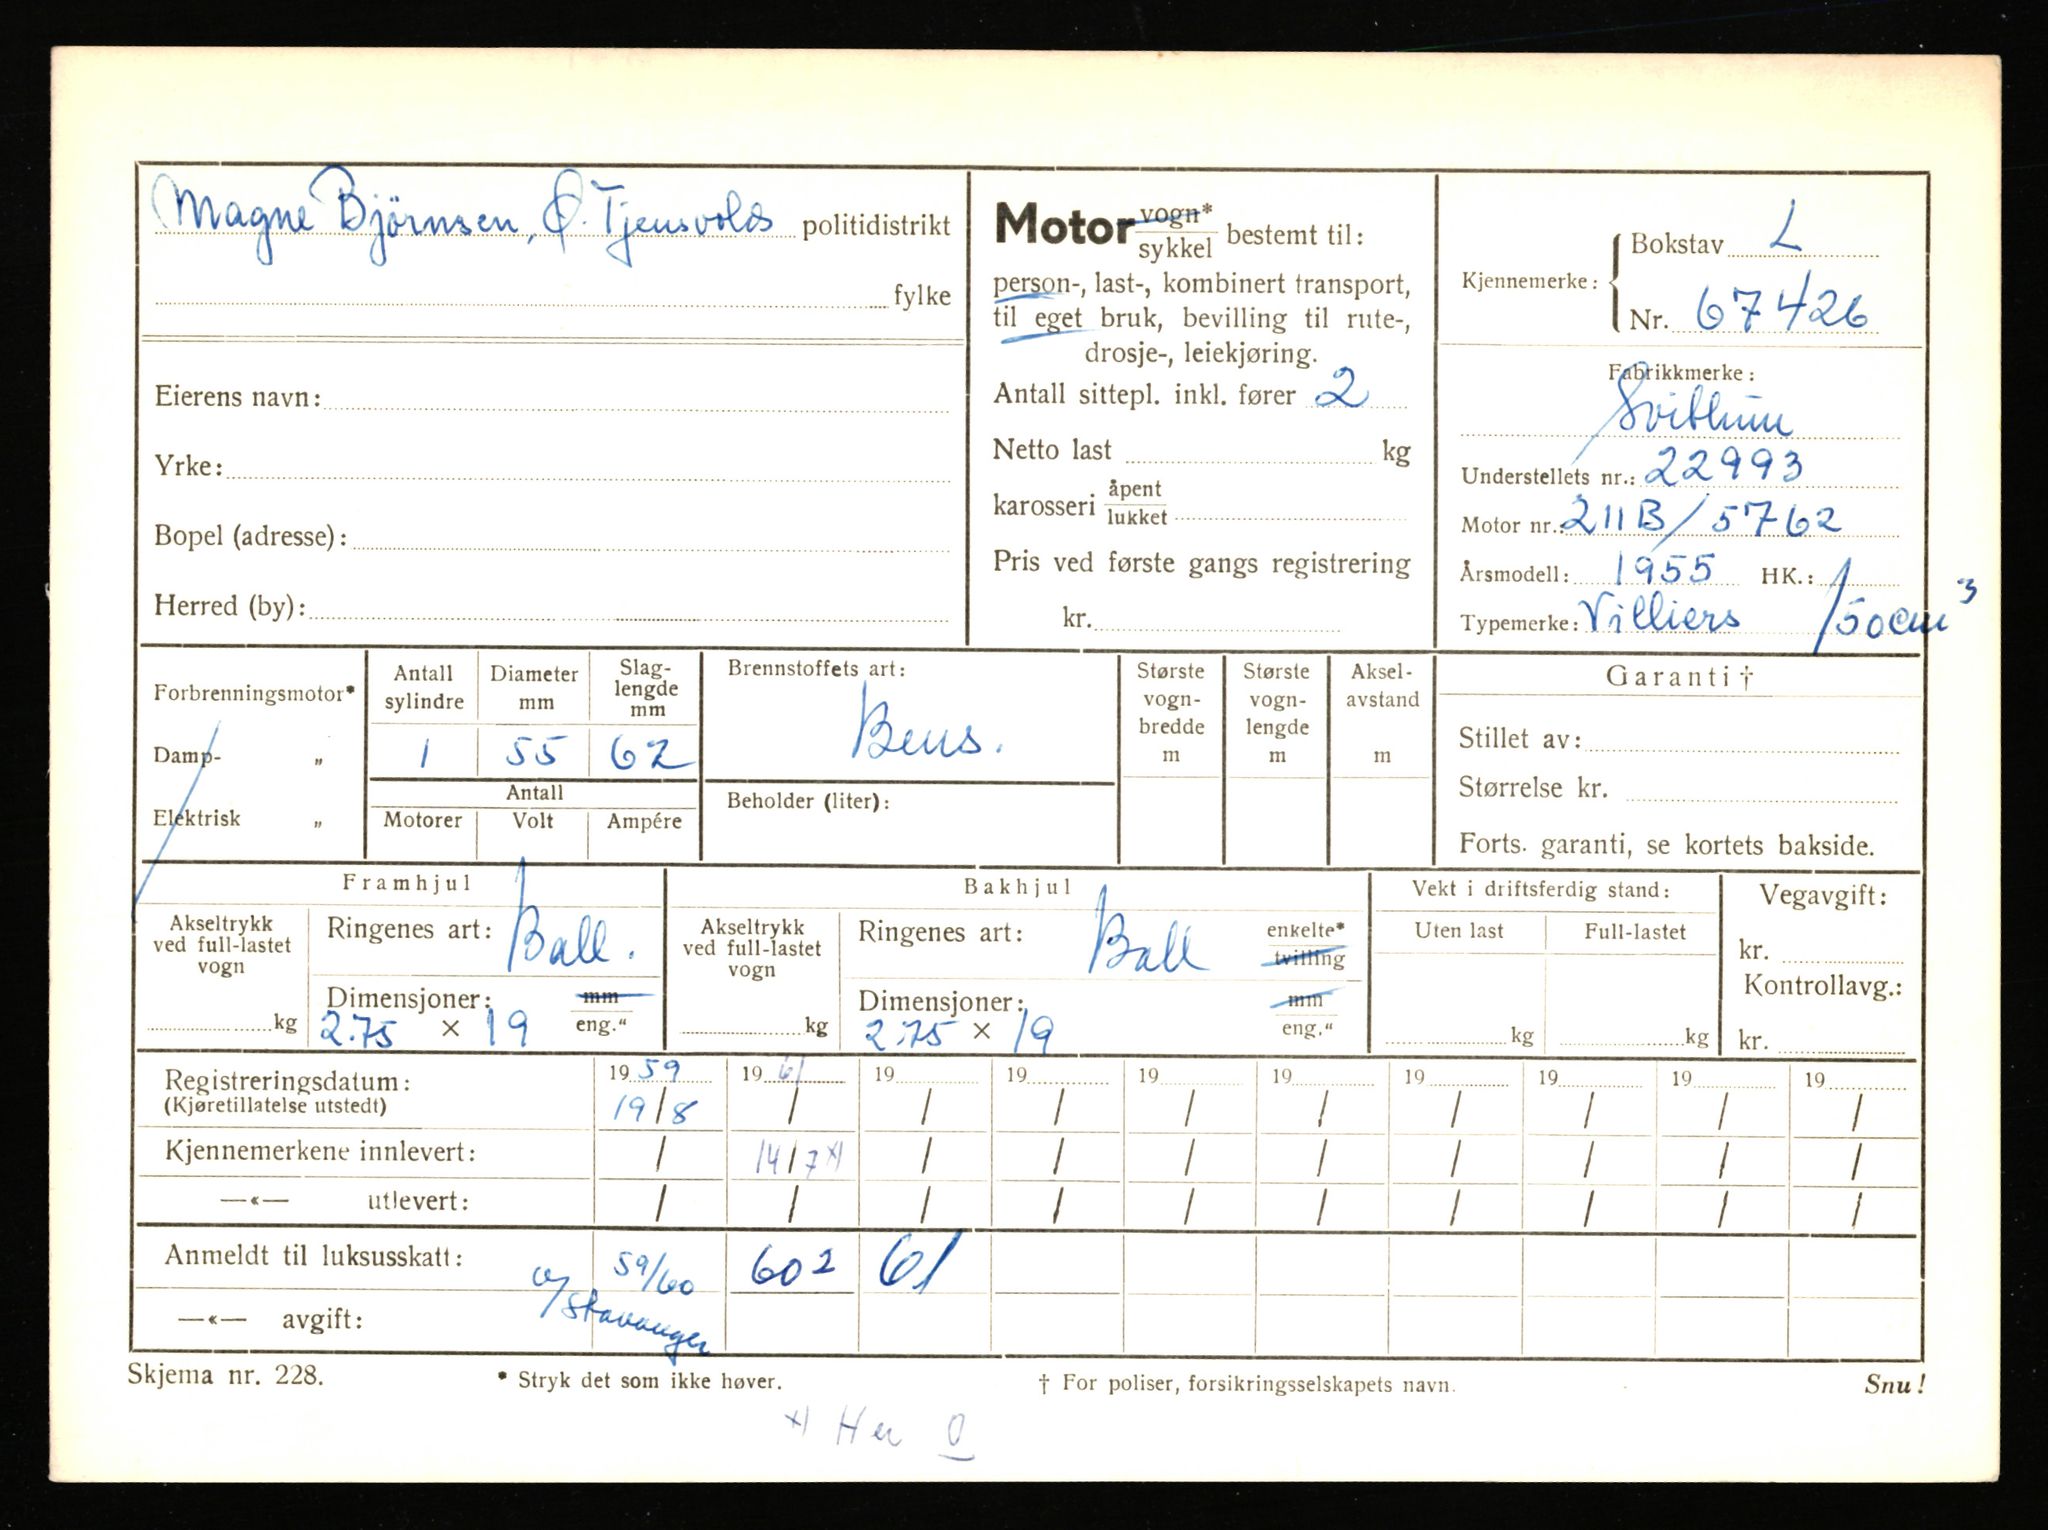 Magne Bjørnsen, Ø. Tjensvolds politidistrikt
fylke
Eierens navn:
Yrke:
Bopel (adresse):
Herred (by):
Motor vogn*
sykkel bestemt til:
person-, last-, kombinert transport,
til eget bruk, bevilling til rute-,
drosje-, leiekjøring.
Antall sittepl. inkl. fører 2
Netto last kg
karosseri åpent
lukket
Pris ved første gangs registrering
kr.
Kjennemerke: Bokstav L
Nr. 67426
Fabrikkmerke:
Svithun
Understellets nr.: 22993
Motor nr.: 211B/5762
Årsmodell: 1955 HK.:
Typemerke: Villiers 150 cm³
Forbrenningsmotor*
Damp- „
Elektrisk „
Antall sylindre Diameter mm Slag-lengde mm
1 55 62
Antall
Motorer Volt Ampére
Brennstoffets art:
Bens.
Beholder (liter):
Største vogn-bredde m
Største vogn-lengde m
Aksel-avstand m
Garanti †
Stillet av:
Størrelse kr.
Forts. garanti, se kortets bakside.
Framhjul
Akseltrykk ved full-lastet vogn
kg
Ringenes art: Ball.
Dimensjoner: mm
2.75 × 19 eng."
Bakhjul
Akseltrykk ved full-lastet vogn
kg
Ringenes art: Ball enkelte*
tvilling
Dimensjoner: mm
2.75 × 19 eng."
Vekt i driftsferdig stand:
Uten last Full-lastet
kg kg
Vegavgift:
kr.
Kontrollavg.:
kr.
Registreringsdatum: 1959 1961 19 19 19 19 19 19 19 19
(Kjøretillatelse utstedt) 19/8 / / / / / / / / /
Kjennemerkene innlevert: / 14/7 x) / / / / / / / /
—«— utlevert: / / / / / / / / / /
Anmeldt til luksusskatt: 59/60 602 61
Stavanger
—«— avgift:
Skjema nr. 228. * Stryk det som ikke høver. † For poliser, forsikringsselskapets navn. Snu!
x) Her 0